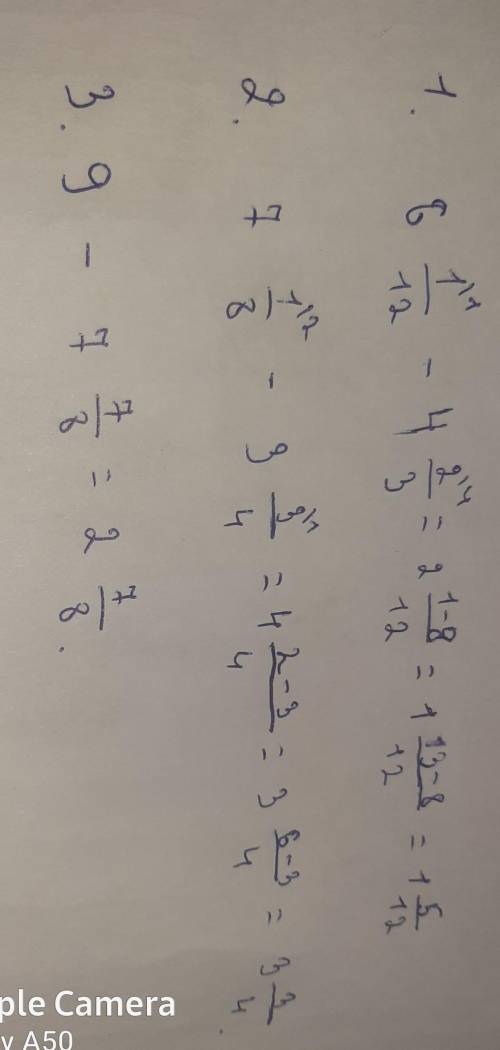 1. 6 1\1/12 - 4 2\4/3 = 2 1-8/12 = 1 13-8/12 = 1 5/12
2. 7 1\2/8 - 3 3\1/4 = 4 2-3/4 = 3 6-3/4 = 3 3/4.
3. 9 - 7 7/8 = 2 7/8.
ple Camera
y A50